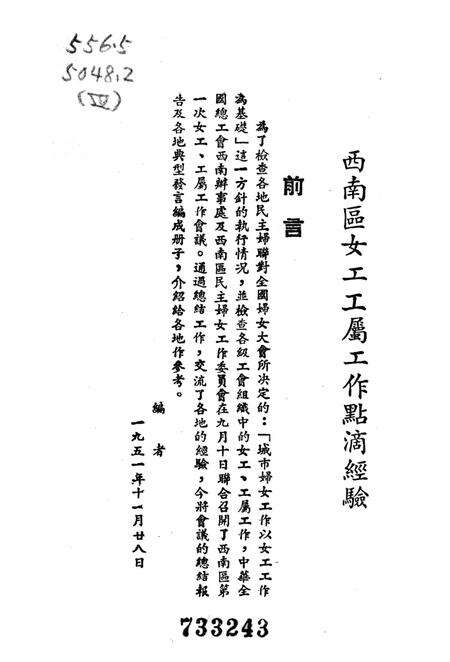 556.5
5048.2
(Ⅳ)
西南區女工工屬工作點滴經驗
前言
為了檢查各地民主婦聯對全國婦女大會所決定的：「城市婦女工作以女工工作
為基礎」這一方針的執行情況，並檢查各級工會組織中的女工、工屬工作，中華全
國總工會西南辦事處及西南區民主婦女工作委員會在九月十日聯合召開了西南區第
一次女工、工屬工作會議。通過總結工作，交流了各地的經驗，今將會議的總結報
告及各地典型發言編成册子，介紹給各地作參考。
編者
一九五一年十一月廿八日
733243